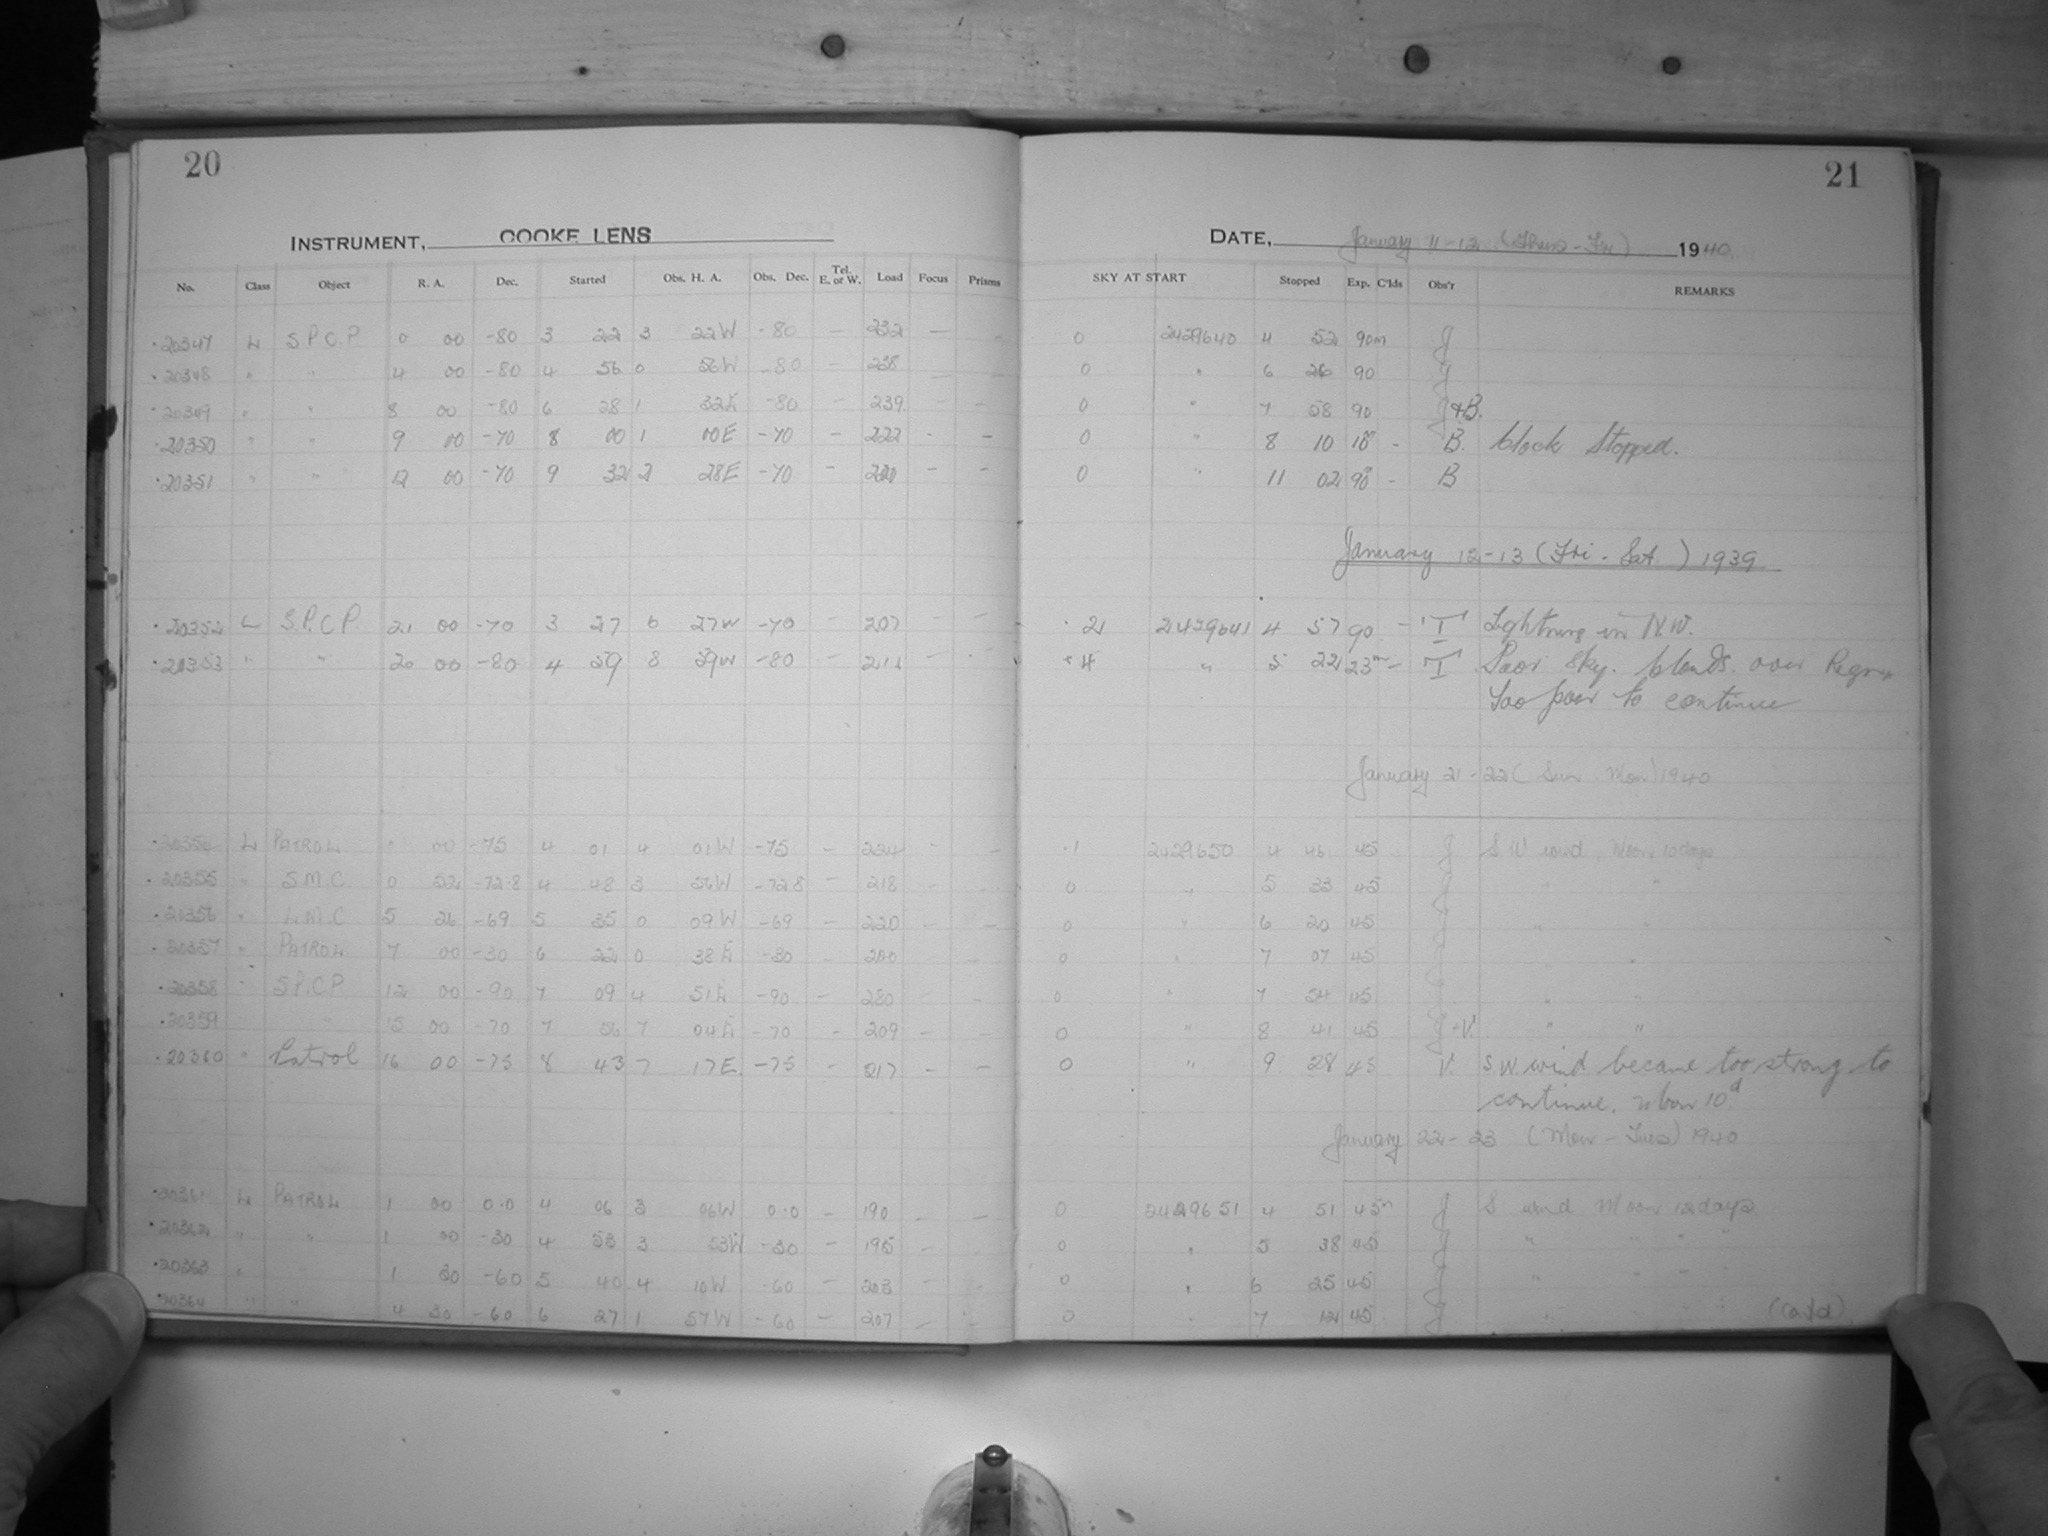 20
21
INSTRUMENT, COOKE LENS
DATE, January 11-12 (Thurs-Fri) 1940
No. Class Object R. A. Dec. Started Obs. H. A. Obs. Dec. Tel. E. or W. Load Focus Prisms SKY AT START Stopped Exp. C'lds Obs'r REMARKS
20347 L S.P.C.P 0 00 -80 3 22 3 22W -80 - 232 - - 0 2429640 4 52 90m J
20348 " " 4 00 -80 4 56 0 56W -80 - 238 - - 0 " 6 26 90 J
20349 " " 8 00 -80 6 28 1 32E -80 - 239 - - 0 " 7 58 90 J+B.
20350 " " 9 00 -70 8 00 1 00E -70 - 222 - - 0 " 8 10 10m - B. Clock Stopped.
20351 " " 12 00 -70 9 32 2 28E -70 - 220 - - 0 " 11 02 90m - B
January 12-13 (Fri - Sat.) 1939
20352 L S.P.C.P. 21 00 -70 3 27 6 27W -70 - 207 - - 21 2429641 4 57 90 - T Lightning in N.W.
20353 " " 20 00 -80 4 59 8 59W -80 - 211 - - 4 " 5 22 23m - T Poor Sky. Clouds over Region
Too poor to continue
January 21-22 (Sun. Mon) 1940
20354 L PATROL 00 -75 4 01 4 01W -75 - 224 - - 1 2429650 4 46 45 J S W wind, Moon 12 days
20355 " S.M.C. 0 52 -72.8 4 48 3 56W -72.8 - 218 - - 0 " 5 33 45 J " "
20356 " L.M.C 5 26 -69 5 35 0 09W -69 - 220 - - 0 " 6 20 45 J "
20357 " PATROL 7 00 -30 6 22 0 38E -30 - 200 - - 0 " 7 07 45 J "
20358 " S.P.C.P 12 00 -90 7 09 4 51E -90 - 280 - - 0 " 7 54 45 J " "
20359 " " 15 00 -70 7 56 7 04E -70 - 209 - - 0 " 8 41 45 J+V. " "
20360 " Patrol 16 00 -75 8 43 7 17E -75 - 217 - - 0 " 9 28 45 V. S.W. wind became too strong to
continue. Moon 10d
January 22-23 (Mon-Tues) 1940
20361 L PATROL 1 00 0.0 4 06 3 06W 0.0 - 190 - - 0 2429651 4 51 45m J S wind Moon 12 days
20362 " " 1 00 -30 4 53 3 53W -30 - 195 - - 0 " 5 38 45 J " " " "
20363 " 1 30 -60 5 40 4 10W -60 - 203 - - 0 " 6 25 45 J " " "
20364 " " 4 30 -60 6 27 1 57W -60 - 207 - - 0 " 7 12 45 J "